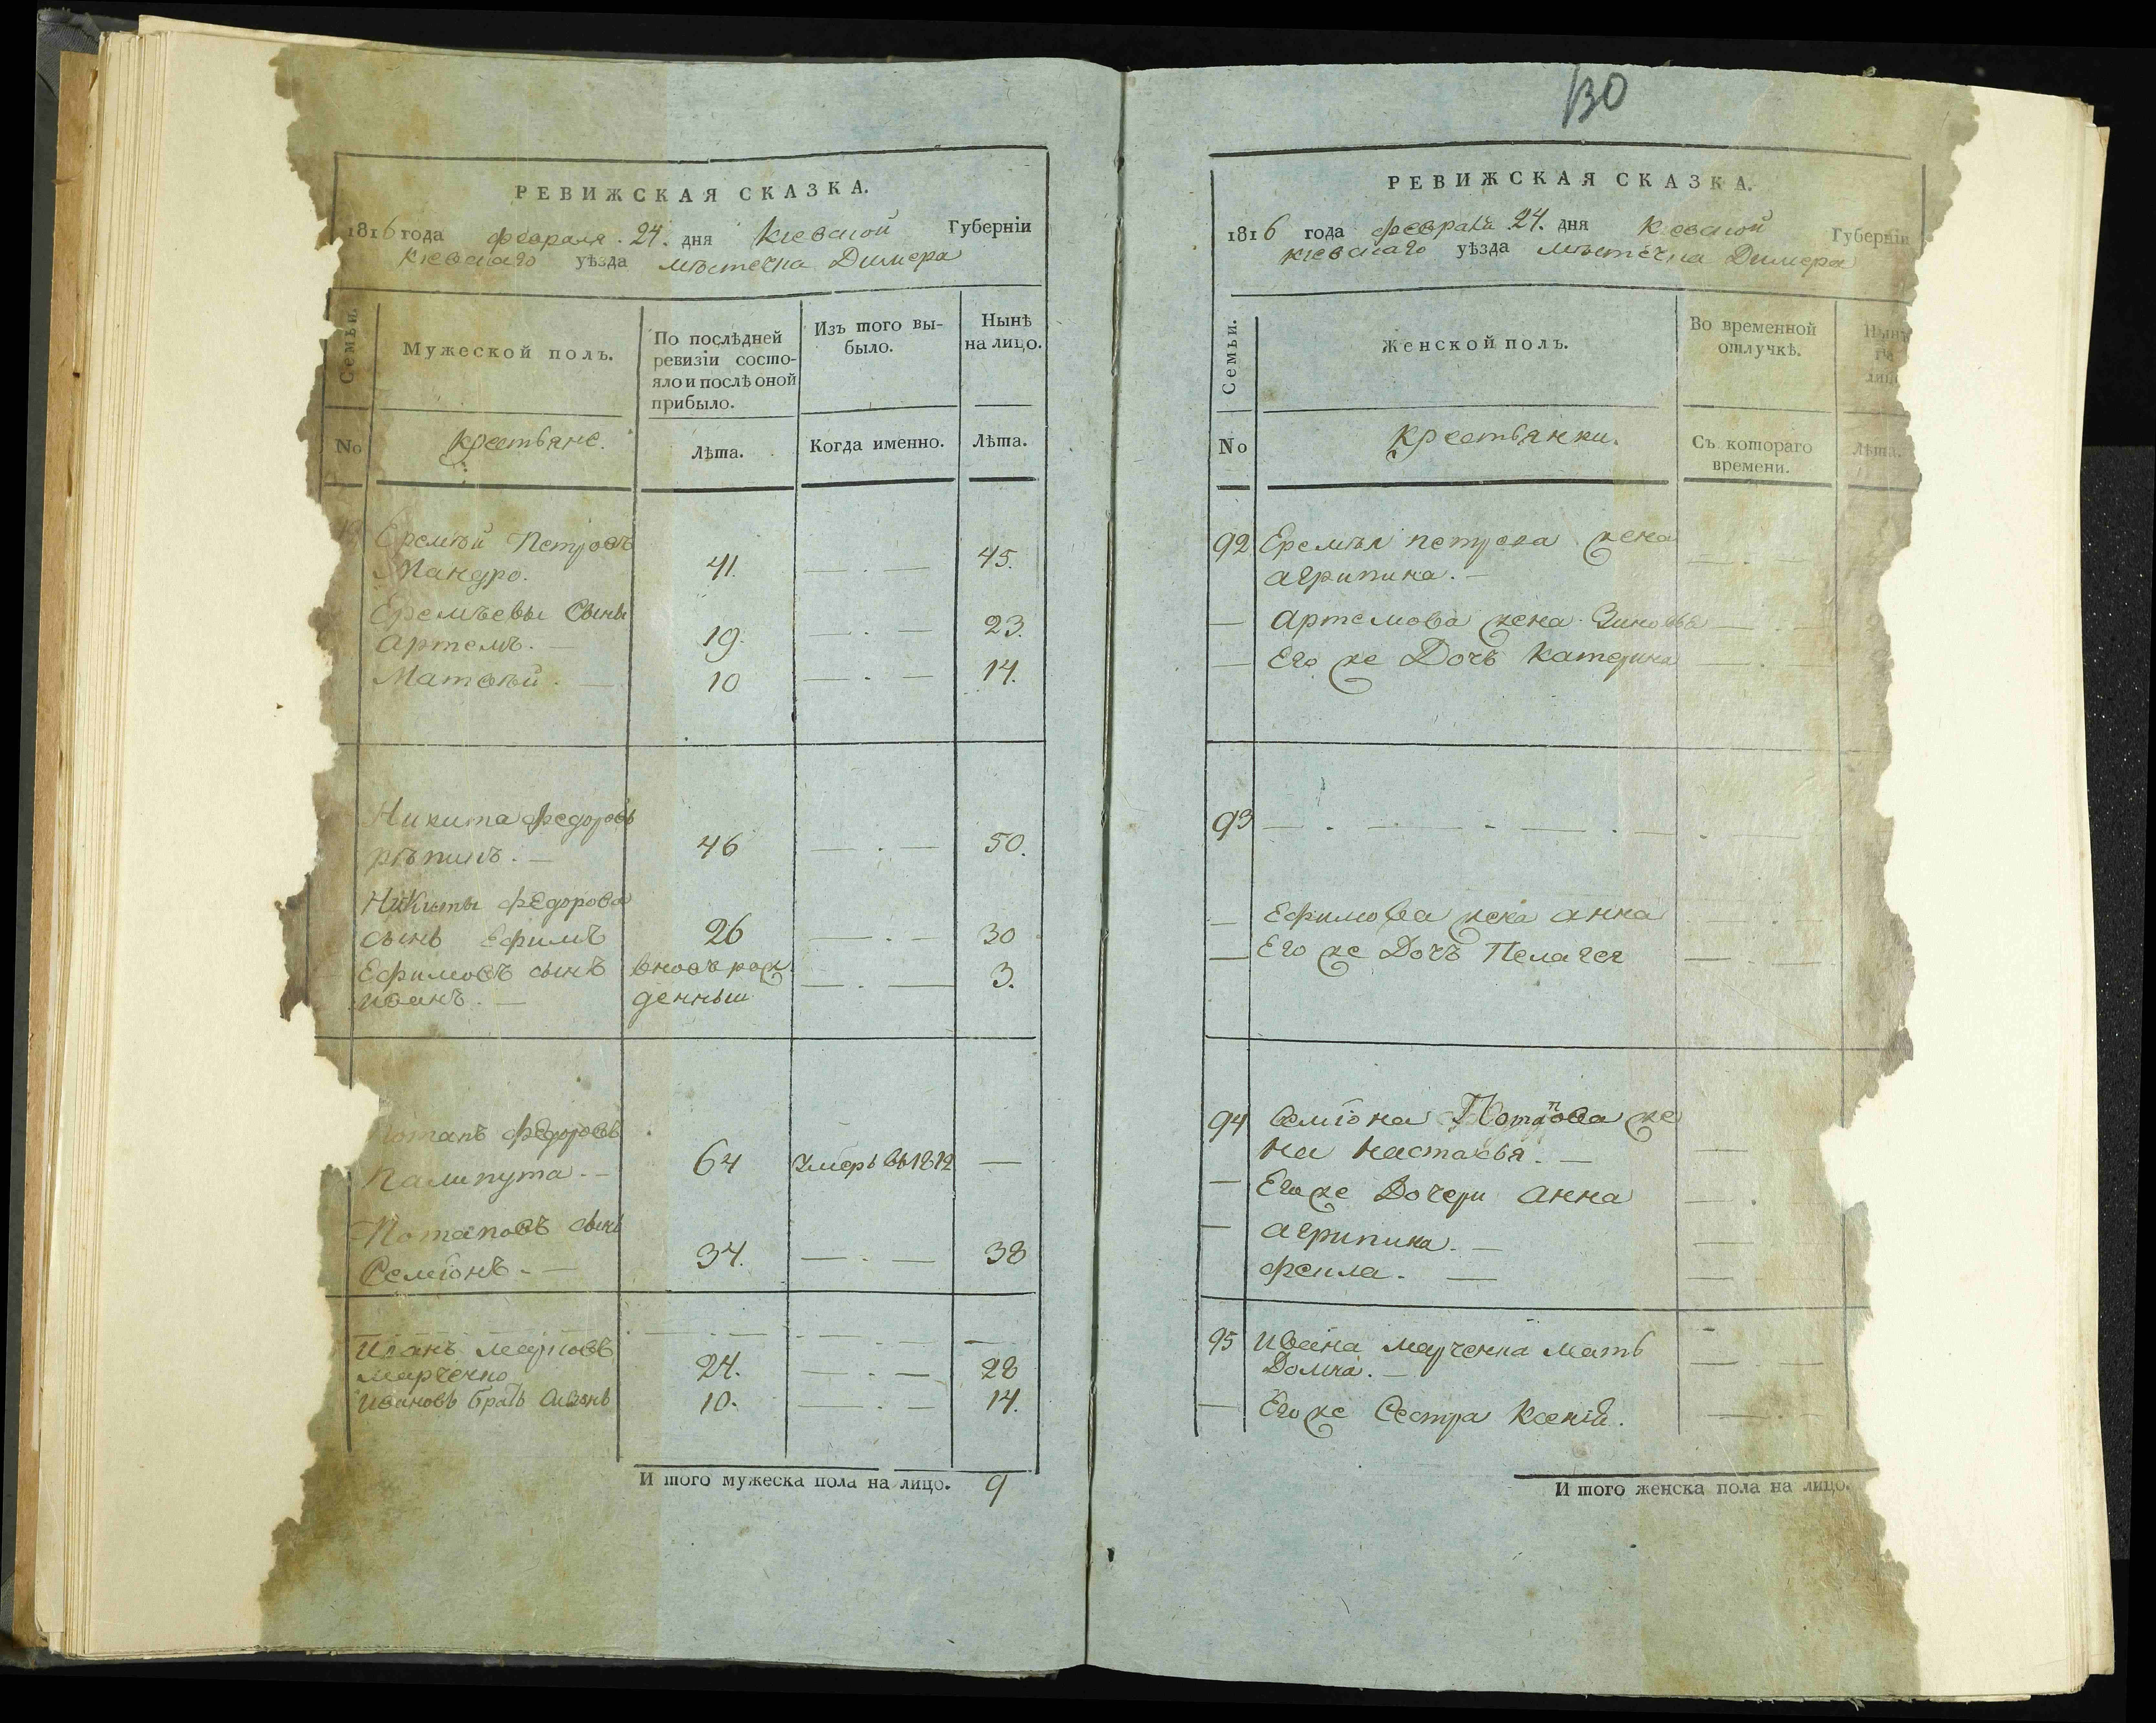 130
РЕВИЖСКАЯ СКАЗКА.
1816 года февраля 24. дня Кіевской Губерніи
Кіевскаго уѣзда мѣстечка Димера
Семьи.
Мужеской полъ.
По послѣдней ревизіи состо-
яло и послѣ оной
прибыло.
Изъ того вы-
было.
Нынѣ
на лицо.
No
крестьяне.
Лѣта.
Когда именно.
Лѣта.
Еремѣй Петровъ
Мандро. 41. — . — 45.
Еремѣевы Сыны
Артемъ. — 19. — . — 23.
Матвѣй. — 10 — . — 14.
Никита Федоровъ
рѣпичъ. — 46 — . — 50.
Никиты Федорова
сынъ Ефимъ 26 — . — 30
Ефимовъ сынъ вновь рож
Иванъ. — денный — . — 3.
Потапъ Федоровъ
64 Умеръ въ 1812 —
Потаповъ сынъ
Семіонъ. — 34. — . — 38
Иванъ
Марченко 24. — . — 28
Ивановъ братъ 10. — . — 14.
И того мужеска пола на лицо. 9
РЕВИЖСКАЯ СКАЗКА.
1816 года февраля 24. дня Кіевской Губерніи
Кіевскаго уѣзда мѣстечка Димера
Семьи.
Женской полъ.
Во временной
отлучкѣ.
Нынѣ
на
лицо
No
крестьянки.
Съ котораго
времени.
Лѣта.
92 Еремѣя петрова жена
агрипина. —
— Артемова жена Зиновія
— Его же Дочь Катерина
93 — . — - — . — . —
— Ефимова жена анна
— Его же Дочь Пелагея
94 Семіона Потапова же
на Настасья. —
— Его же Дочери Анна
— агрипина. —
феила. —
95 Ивана Марченка мать
Домка. —
— Его же Сестра Ксенія.
И того женска пола на лицо.